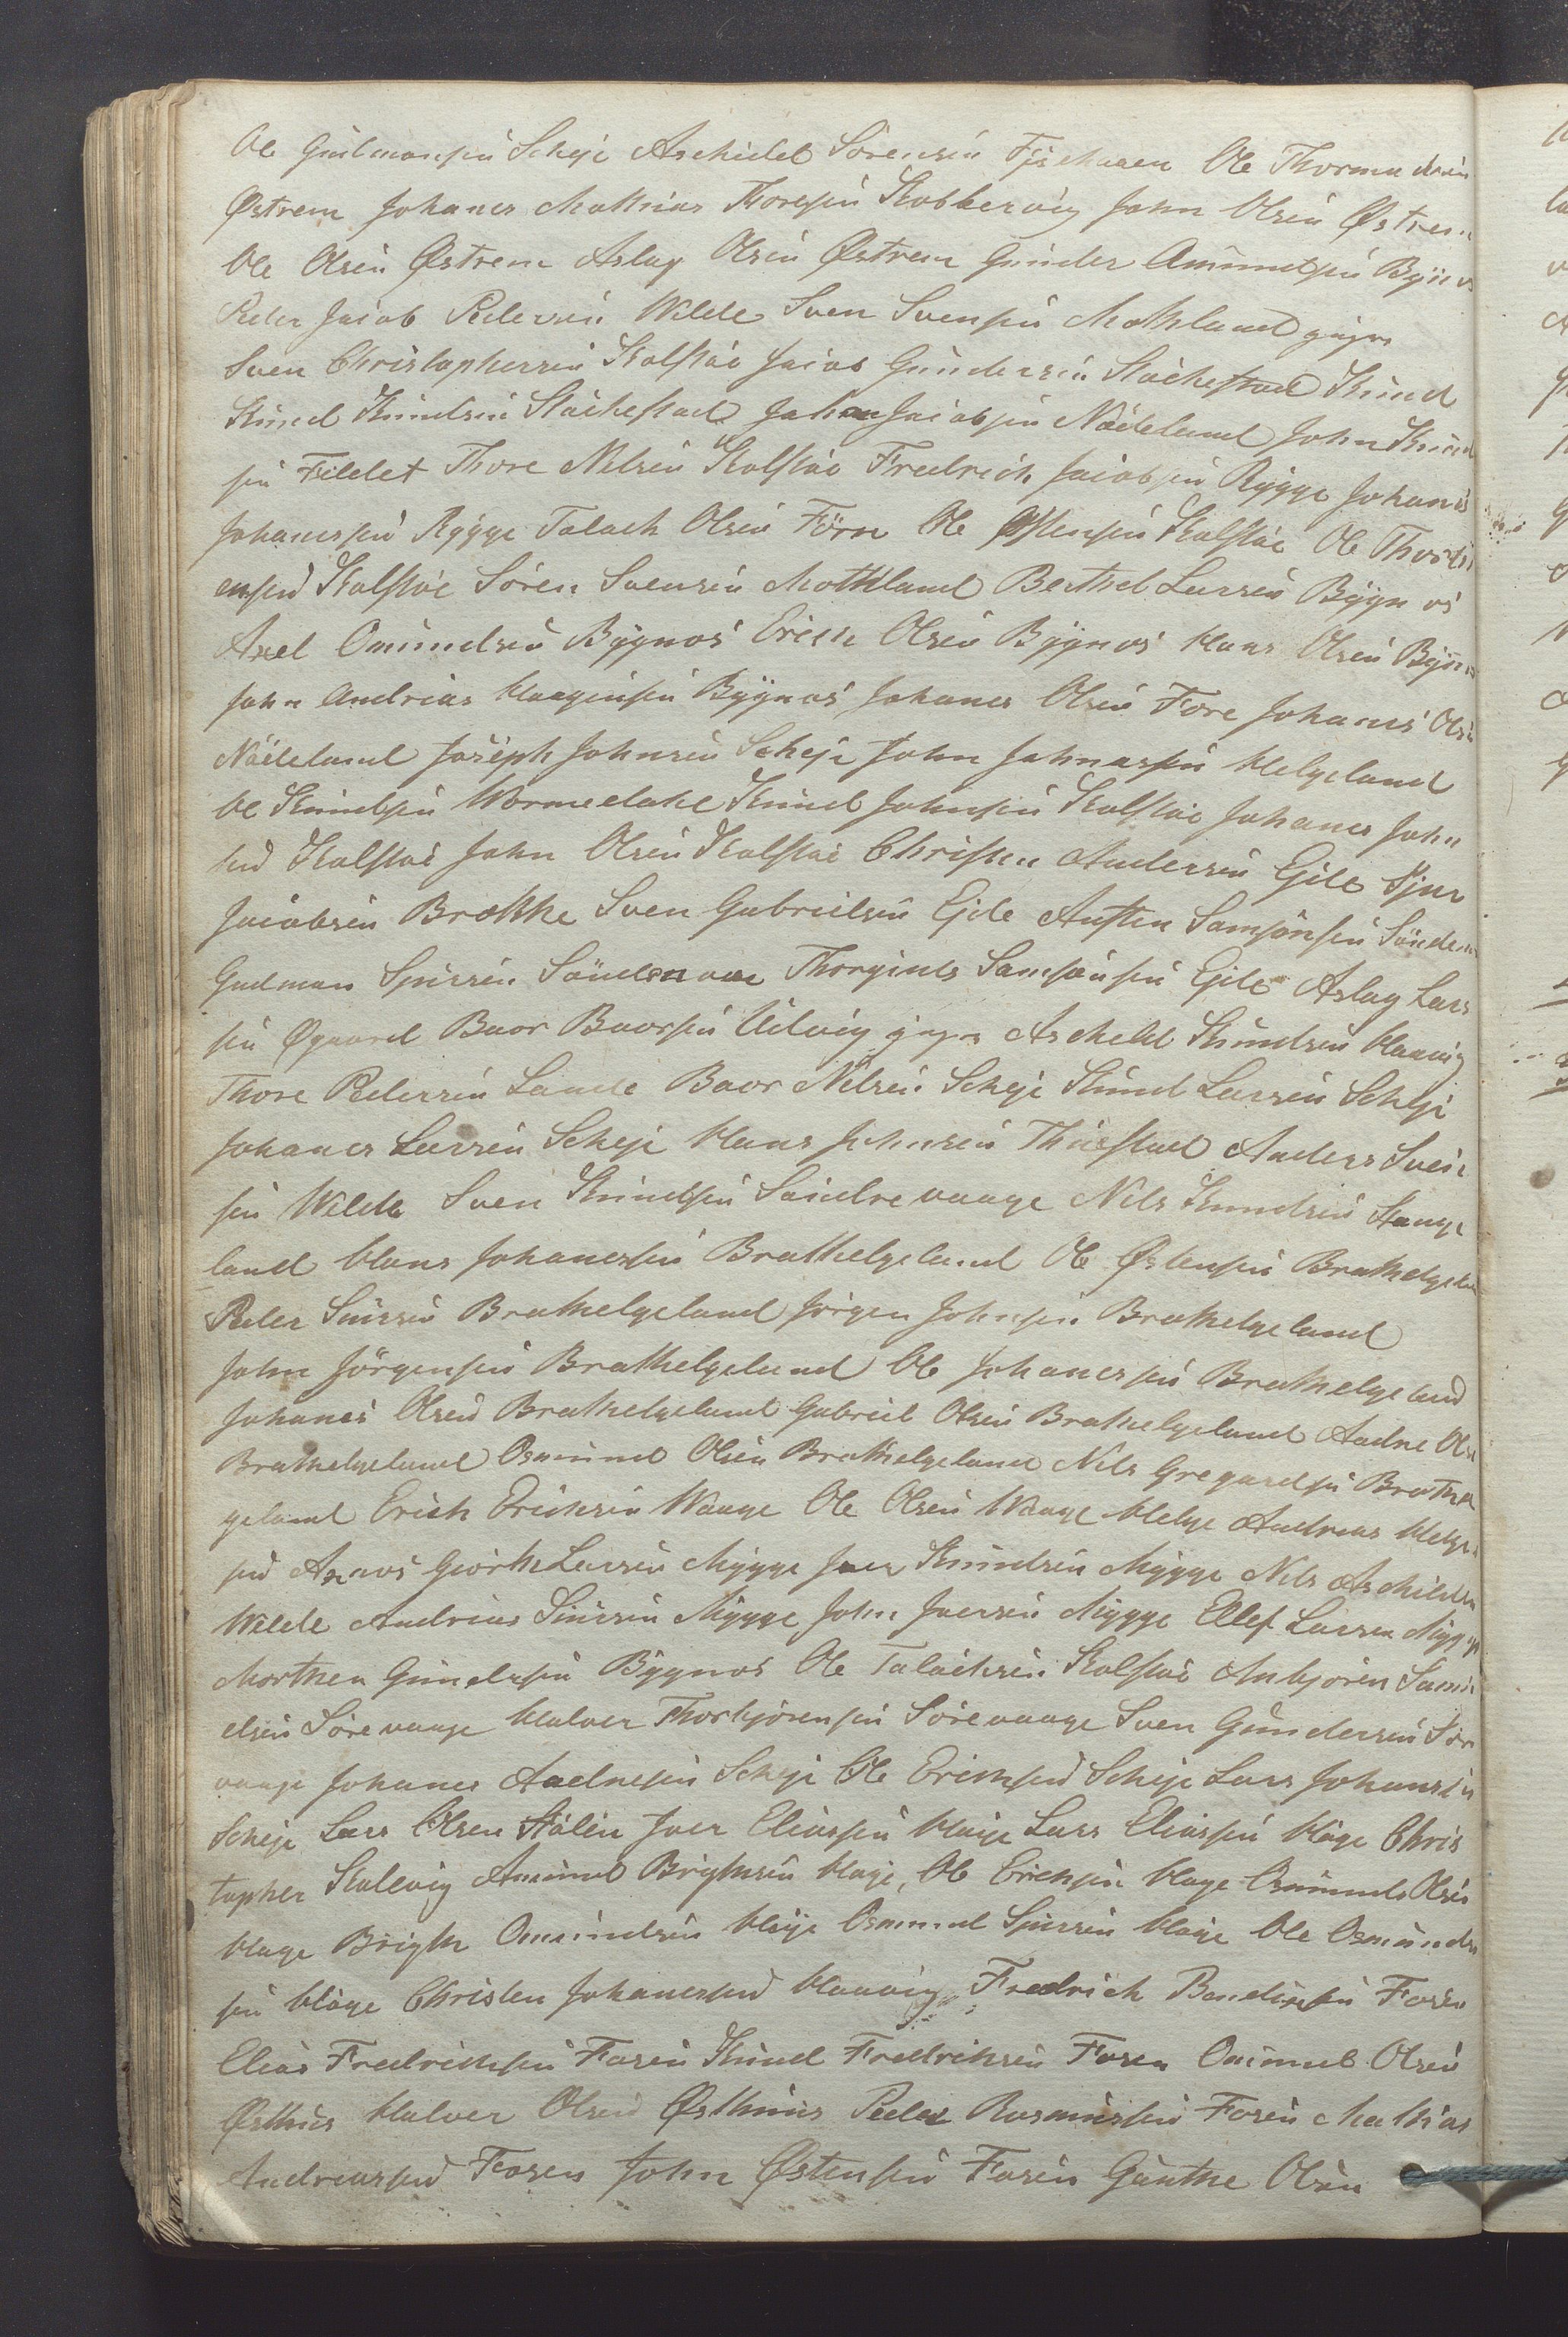 Ole Gudmonsen Scheje Aschildel Sörensen Fischaaen Ole Thormudsen
Østrem Johanes Mathias Thorsen Kobbervig John Olsen Østrem
Ole Olsen Østrem Aslag Olsen Østrem Gunder Amundsen Bÿgnes
Peder Jacob Pedersen Wilde Sven Svensen Mothland
Sven Christophersen Kolstöe Jacob Gundersen Stöchestad Knud
Knud Knudsen Stöchestad Johan Jacobsen Nödeland John Knud
sen Feldet Thore Nilsen Kolstöe Fredrich Jacobsen Rÿgge Johanes
Johanessen Rÿgge Talach Olsen Förre Ole Østensen Kolstöe Ole Thorst
ensen Kolstöe Sören Svensen Mothland Berthel Larsen Bÿgnes
Axel Omundsen Bÿgnes Erich Olsen Bÿgnes Hans Olsen Bÿgnes
John Andreas Haagensen Bÿgnes Johanes Olsen Fore Johanes Olsen
Nödeland Joseph Johnsen Scheje John Johnassen Helgeland
Ole Knudsen Wormedahl Knud Johnsen Kolstöe Johanes John
sen Kolstöe John Olsen Kolstöe Christen Andersen Ejde Sjur
Jacobsen Brekke Sven Gabrielsen Ejde Austen Samsonsen Sönden
Gudman Sjursen Söndenaae Thorgiuls Samsonsen Ejde Aslag Lars
sen Øgaard Baor Baorsen Udvig Ascheld Knudsen Haavig
Thore Pedersen Lande Baor Nilsen Scheje Knud Larsen Scheje
Johanes Larsen Scheje Hans Johnsen Thuestad Anders Sven
sen Wilde Sven Knudsen Søndrevaage Nils Knudsen Stange
land Hans Johanessen Brathelgeland Ole Østensen Brathelgeland
Peder Siursen Brathelgeland Jörgen Johnsen Brathelgeland
John Jörgensen Brathelgeland Ole Johanessen Brathelgeland
Johanes Olsen Brathelgeland Gabriel Olsen Brathelgeland Aadne Olsen
Brathelgeland Osmund Olsen Brathelgeland Nils Gregarsen Brathel
geland Erich Erichsen Waage Ole Olsen Waage Helge Andreas Helge
sen Larsen Mÿgge Iver Knudsen Mÿgge Nils Aschilden
Wilde Andreas Siursen Mÿgge John Iversen Mÿgge Ellef Larsen Mÿgge
Morthen Gundersen Bÿgnes Ole Talachsen Kolstöe Anbjören Samu
elsen Sörevaage Halver Thorbjörnsen Sörevaage Sven Gundersen Sör
vaage Johanes Aadnesen Scheje Ole Erichsen Scheje Lars Johansen
Scheje Lars Olsen Stölen Iver Eliassen Höÿe Lars Eliassen Höge Chris
topher Kalevig Amund Brigtsen Höge Ole Erichsen Höge Osmund Olsen
Höge Brigth Omundsen Höÿe Osmund Sjursen Höge Ole Osmunds
sen Höge Christen Johanessen Haavig Fredrich Bendixsen Fosen
Elias Fredrichsen Fosen Knud Fredrichsen Fosen Omund Olsen
Østhus Halver Olsen Østhuus Peder Rasmussen Fosen Mathias
Andreassen Fosen John Østensen Fosen Gunthe Olsen